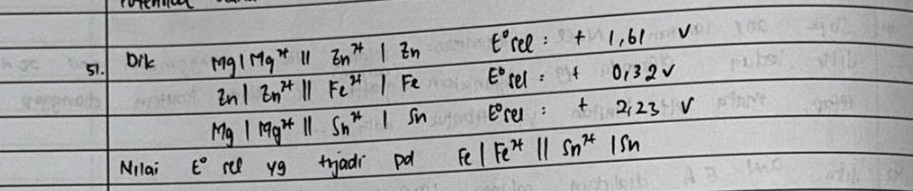 Potential
51. Dik Mg | Mg²⁺ || Zn²⁺ | Zn E° sel : + 1,61 V
Zn | Zn²⁺ || Fe²⁺ | Fe E° sel : + 0,32 V
Mg | Mg²⁺ || Sn²⁺ | Sn E° sel : + 2,23 V
Nilai E° sel yg trjadi pd Fe | Fe²⁺ || Sn²⁺ | Sn